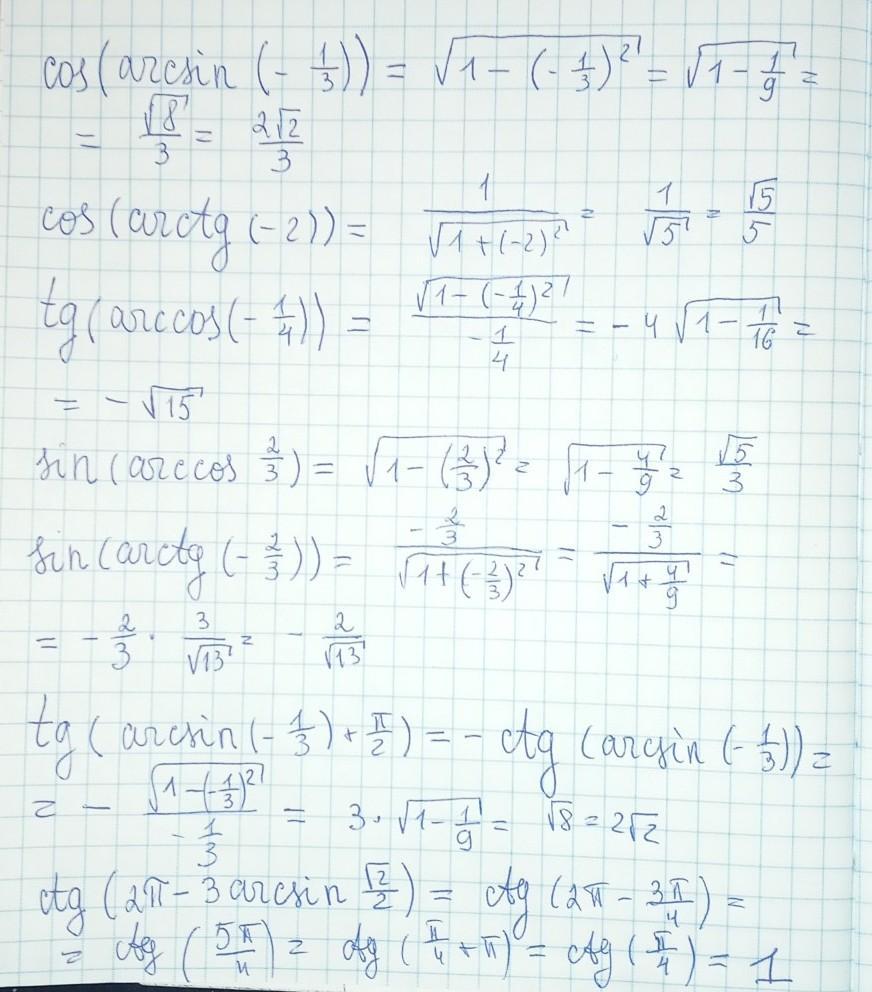 cos(arcsin (- 1/3)) = √(1 - (- 1/3)²) = √(1 - 1/9) =
= √8/3 = 2√2/3
cos(arctg (-2)) = 1/√(1 + (-2)²) = 1/√5 = √5/5
tg(arccos(- 1/4)) = √(1 - (- 1/4)²)/(- 1/4) = - 4 √(1 - 1/16) =
= - √15
sin(arccos 2/3) = √(1 - (2/3)²) = √(1 - 4/9) = √5/3
sin(arctg (- 2/3)) = (- 2/3)/√(1 + (- 2/3)²) = (- 2/3)/√(1 + 4/9) =
= - 2/3 · 3/√13 = - 2/√13
tg( arcsin(- 1/3) + π/2) = - ctg (arcsin (- 1/3)) =
= - √(1 - (- 1/3)²)/(- 1/3) = 3 · √(1 - 1/9) = √8 = 2√2
ctg (2π - 3 arcsin √2/2) = ctg (2π - 3π/4) =
= ctg (5π/4) = ctg (π/4 + π) = ctg (π/4) = 1